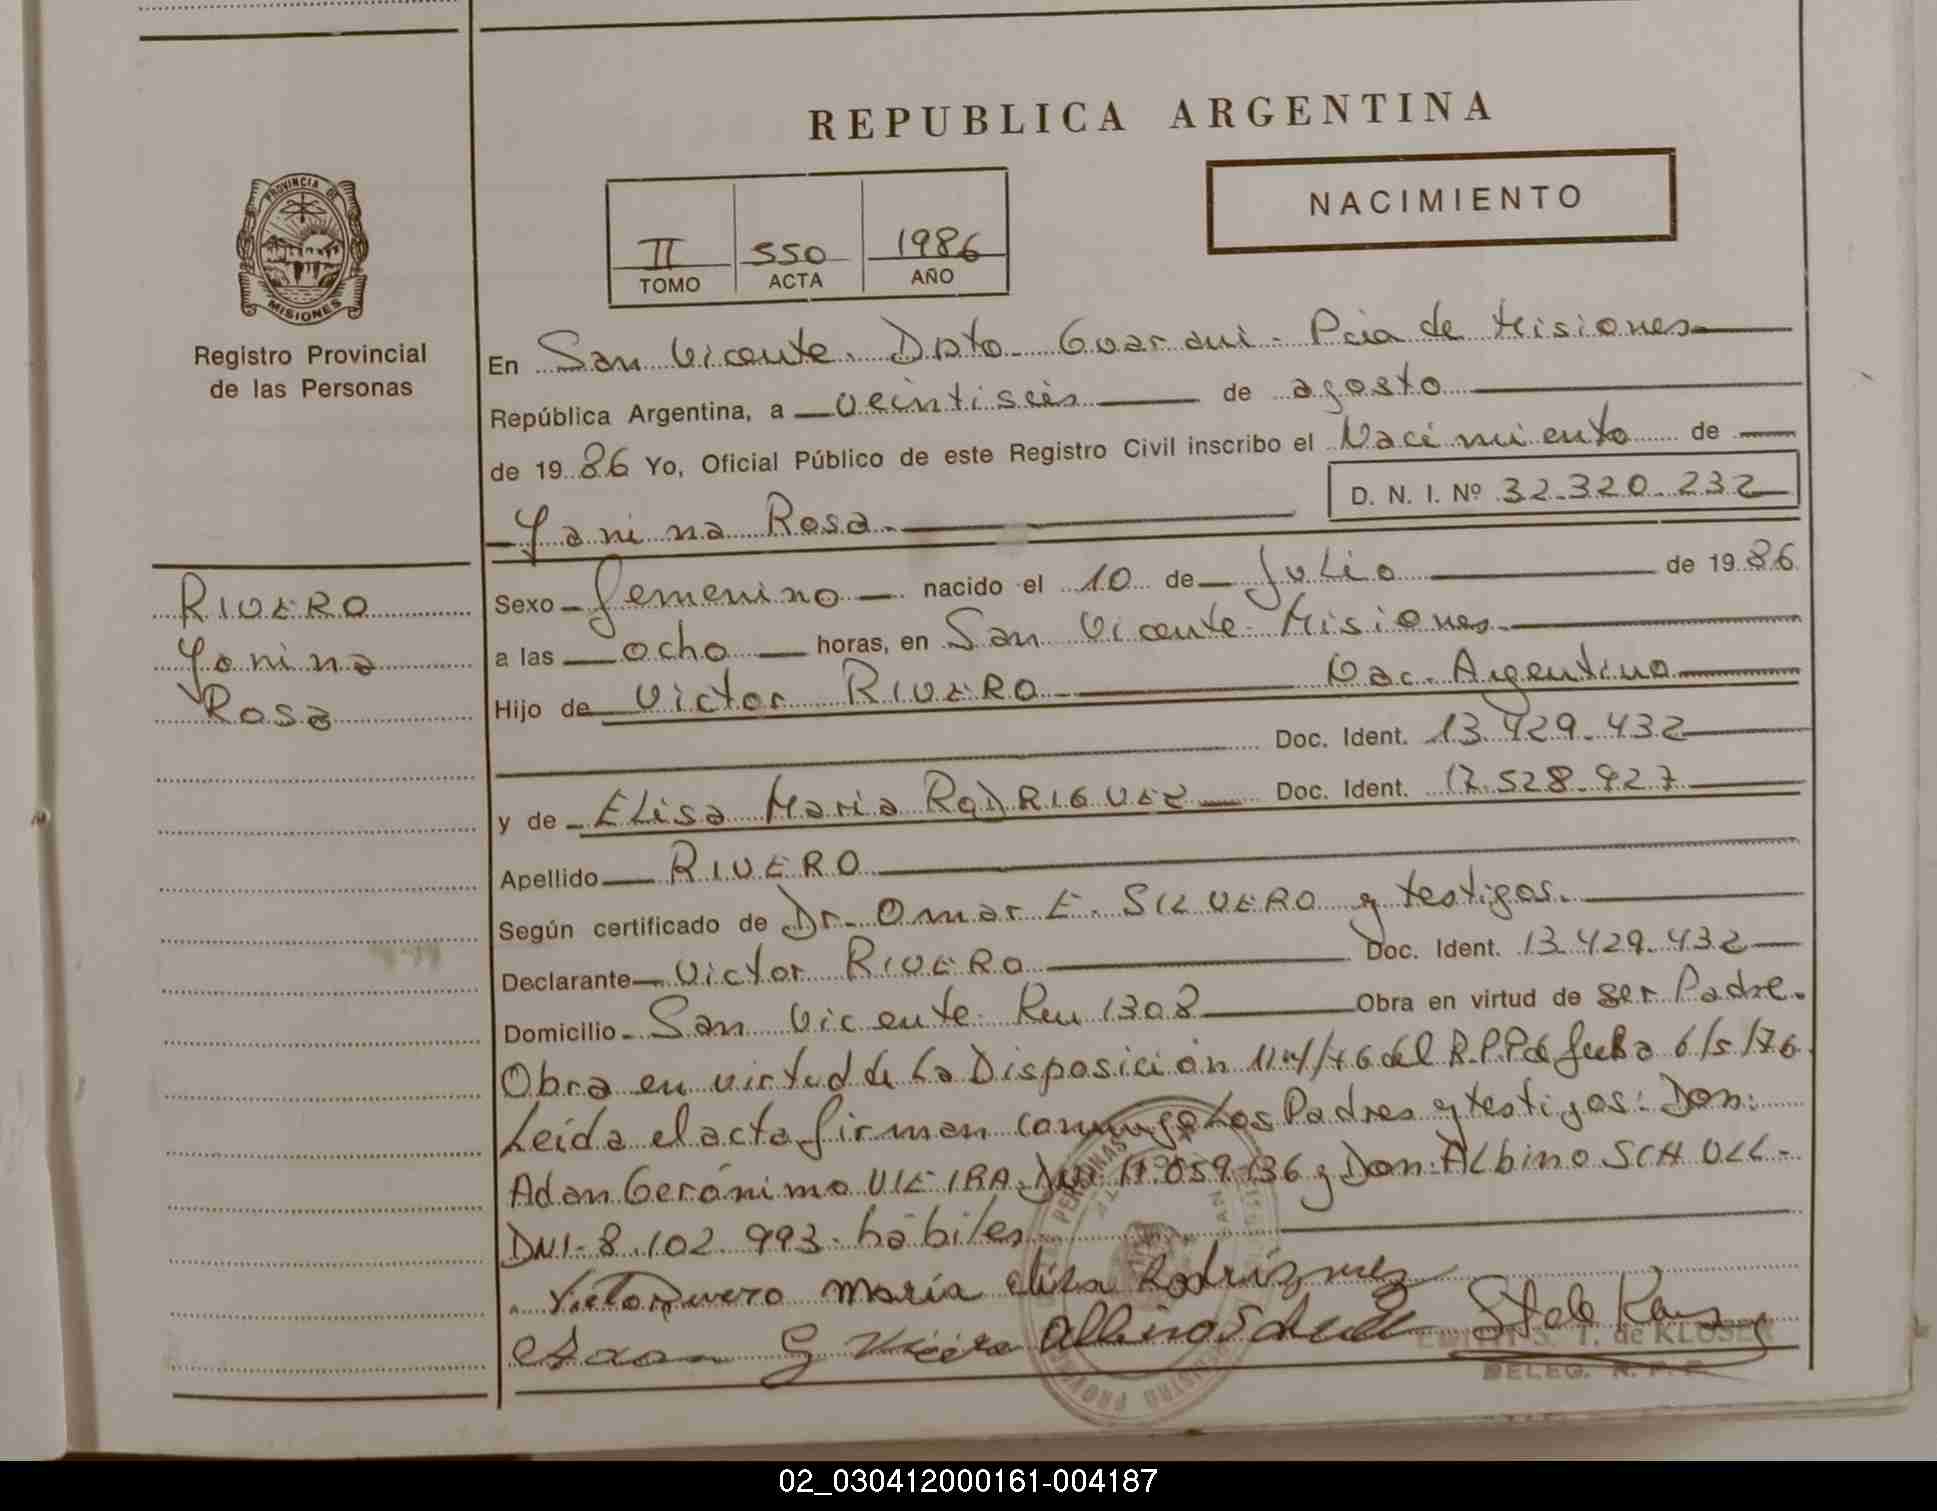 REPUBLICA ARGENTINA
NACIMIENTO
II 550 1986
TOMO ACTA AÑO
PROVINCIA DE
MISIONES
Registro Provincial
de las Personas
En San Vicente. Dpto Guarani. Pcia de Misiones
República Argentina, a veintiséis de agosto
de 1986 Yo, Oficial Público de este Registro Civil inscribo el Nacimiento de
D. N. I. Nº 32.320.232
Yanina Rosa
RIVERO
Yanina
Rosa
Sexo femenino nacido el 10 de Julio de 1986
a las ocho horas, en San Vicente Misiones
Hijo de Victor RIVERO Nac. Argentino
Doc. Ident. 13.429.432
y de Elisa Maria RODRIGUEZ Doc. Ident. 17.528.927
Apellido RIVERO
Según certificado de Dr. Omar E. SILVERO y testigos.
Declarante Victor RIVERO Doc. Ident. 13.429.432
Domicilio San Vicente Obra en virtud de ser Padre.
Obra en virtud de La Disposición del 6/5/76
Leida el acta firman Los Padres y testigos: Don:
Adan Gerónimo VIEIRA y Don: Albino SCHOLL-
DNI-8.102.993. hábiles
Victor Rivero Maria Elisa Rodríguez
G Vieira Albino
T. de KLOSER
DELEG. R. P. P.
02_030412000161-004187